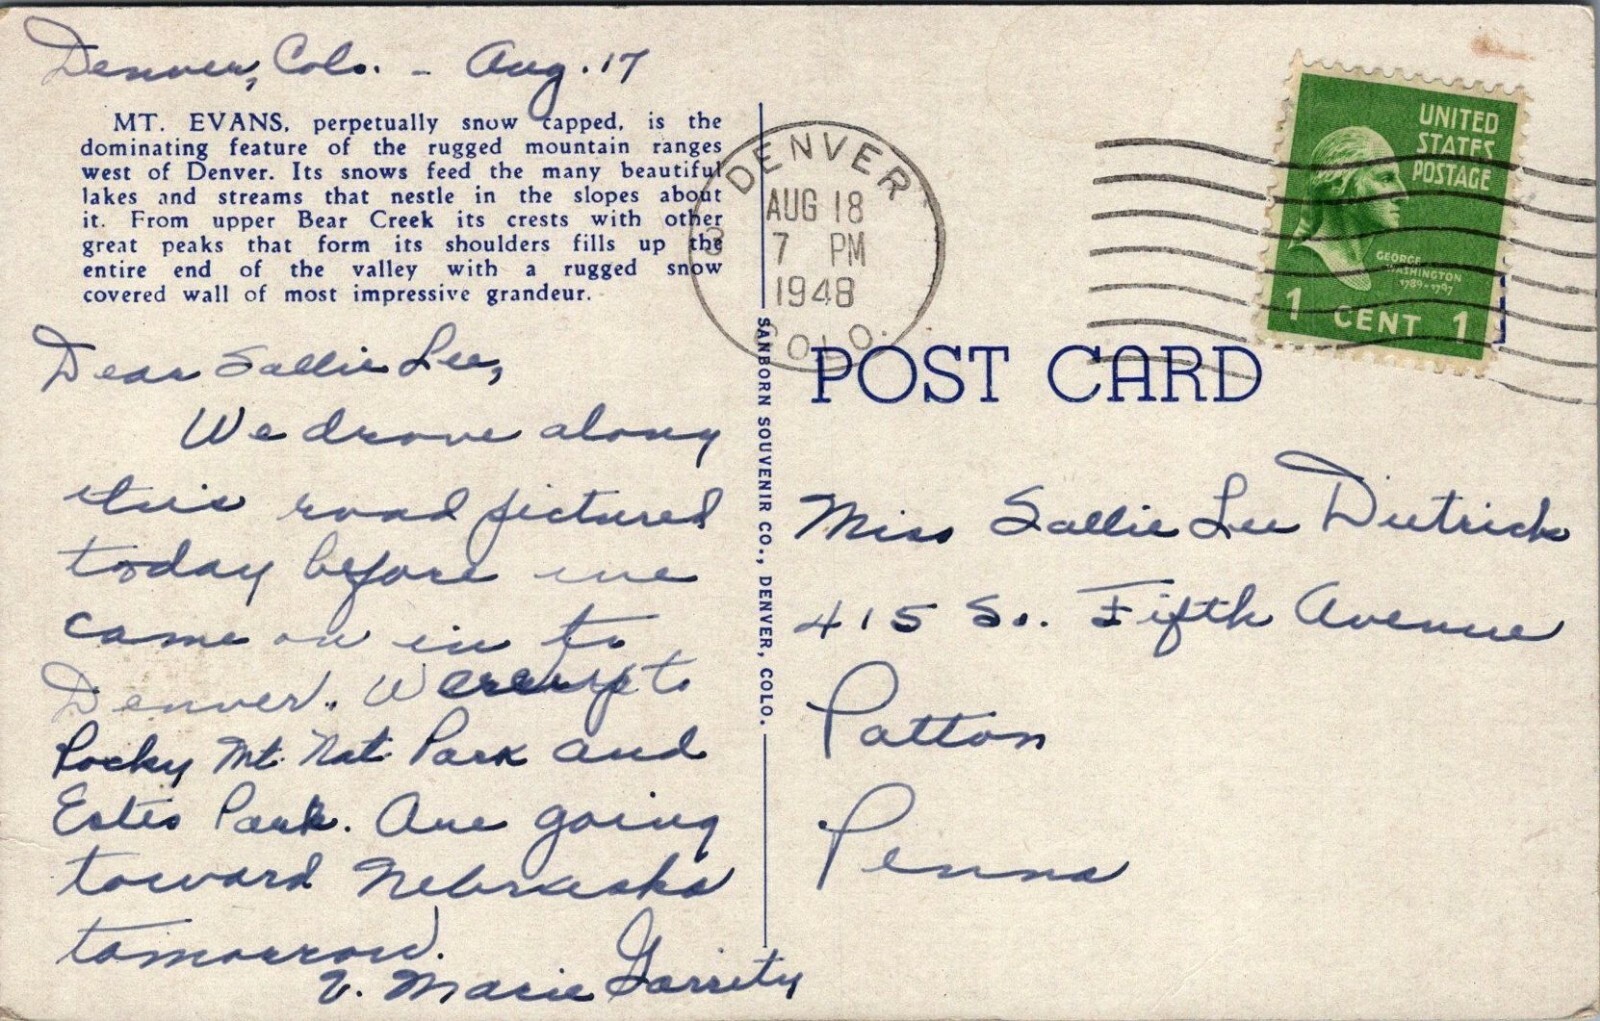 Denver, Colo. - Aug. 17
MT. EVANS, perpetually snow capped, is the
dominating feature of the rugged mountain ranges
west of Denver. Its snows feed the many beautiful
lakes and streams that nestle in the slopes about
it. From upper Bear Creek its crests with other
great peaks that form its shoulders fills up the
entire end of the valley with a rugged snow
covered wall of most impressive grandeur.
Dear Sallie Lee,
We drove along
this road pictured
today before we
came on in to
Denver. We were up to
Rocky Mt. Nat. Park and
Estes Park. Are going
toward Nebraska
tomorrow.
V. Marie Garrity
SANBORN SOUVENIR CO., DENVER, COLO.
DENVER
AUG 18
7 PM
1948
COLO.
3
UNITED
STATES
POSTAGE
GEORGE
WASHINGTON
1789-1797
1 CENT 1
POST CARD
Miss Sallie Lee Dietrick
415 So. Fifth Avenue
Patton
Penna